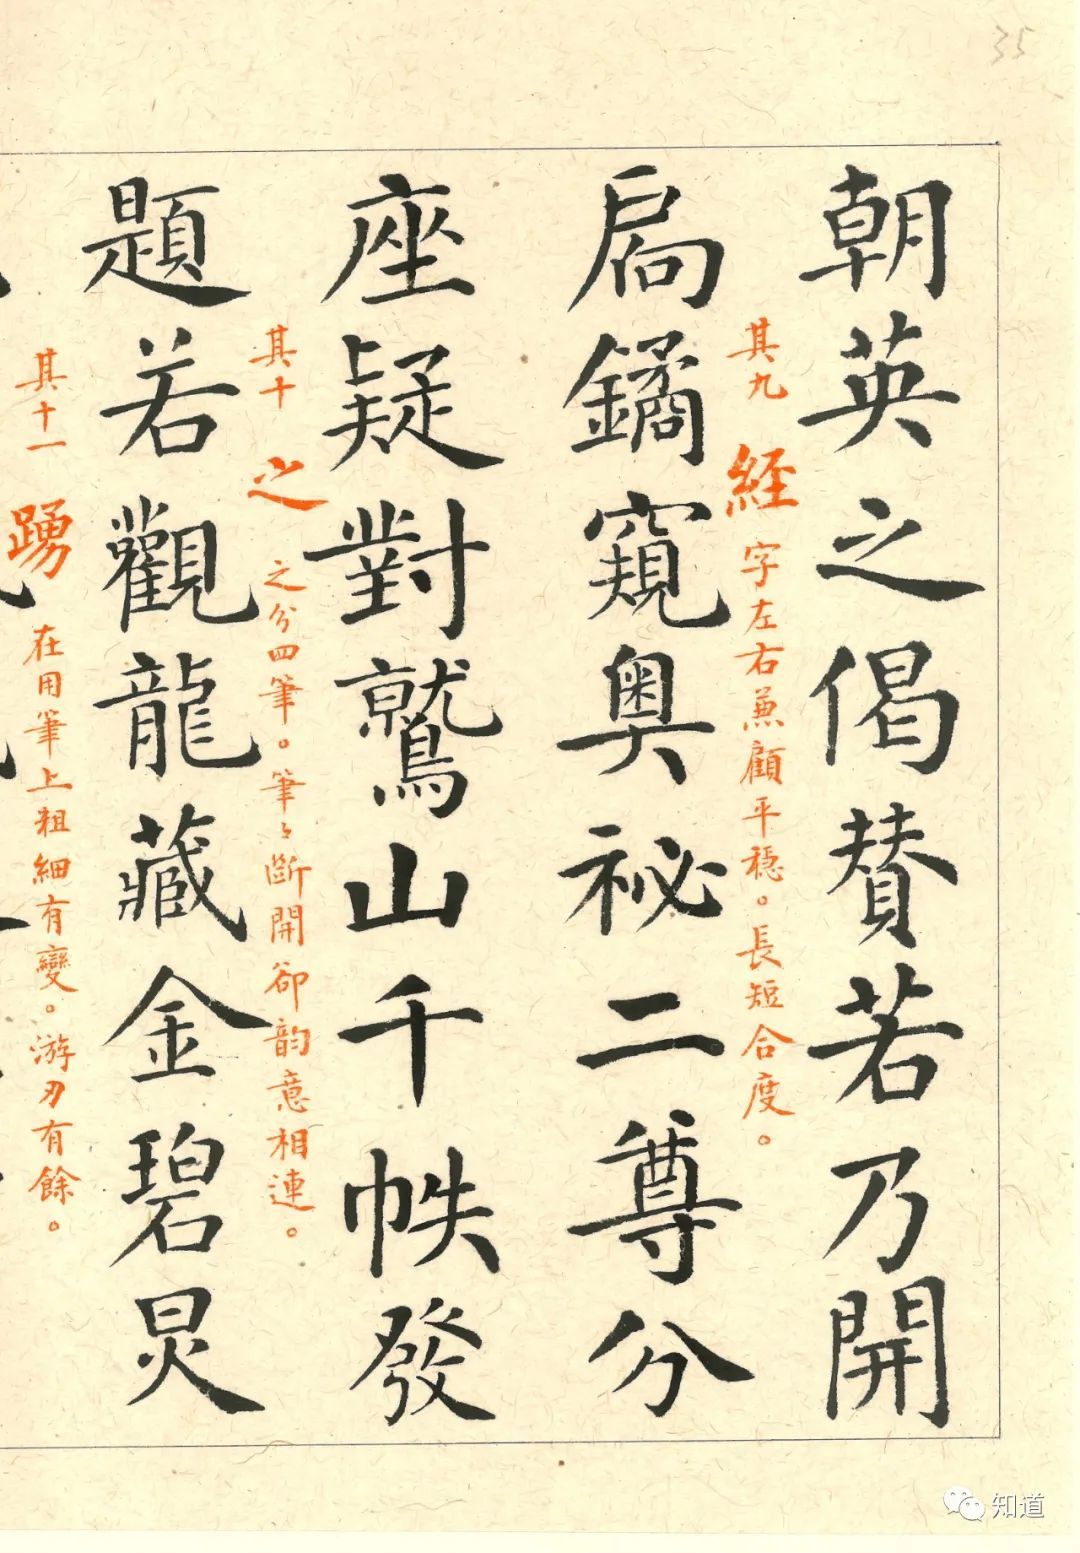 35
朝英之偈賛若乃開
其九 経 字左右兼顧平穩。長短合度。
扄鐍窺奥祕二尊分
座疑對鷲山千帙發
其十 之 之分四筆。筆〻斷開卻韵意相連。
題若觀龍藏金碧炅
其十一 踴 在用筆上粗細有變。游刃有餘。
知道